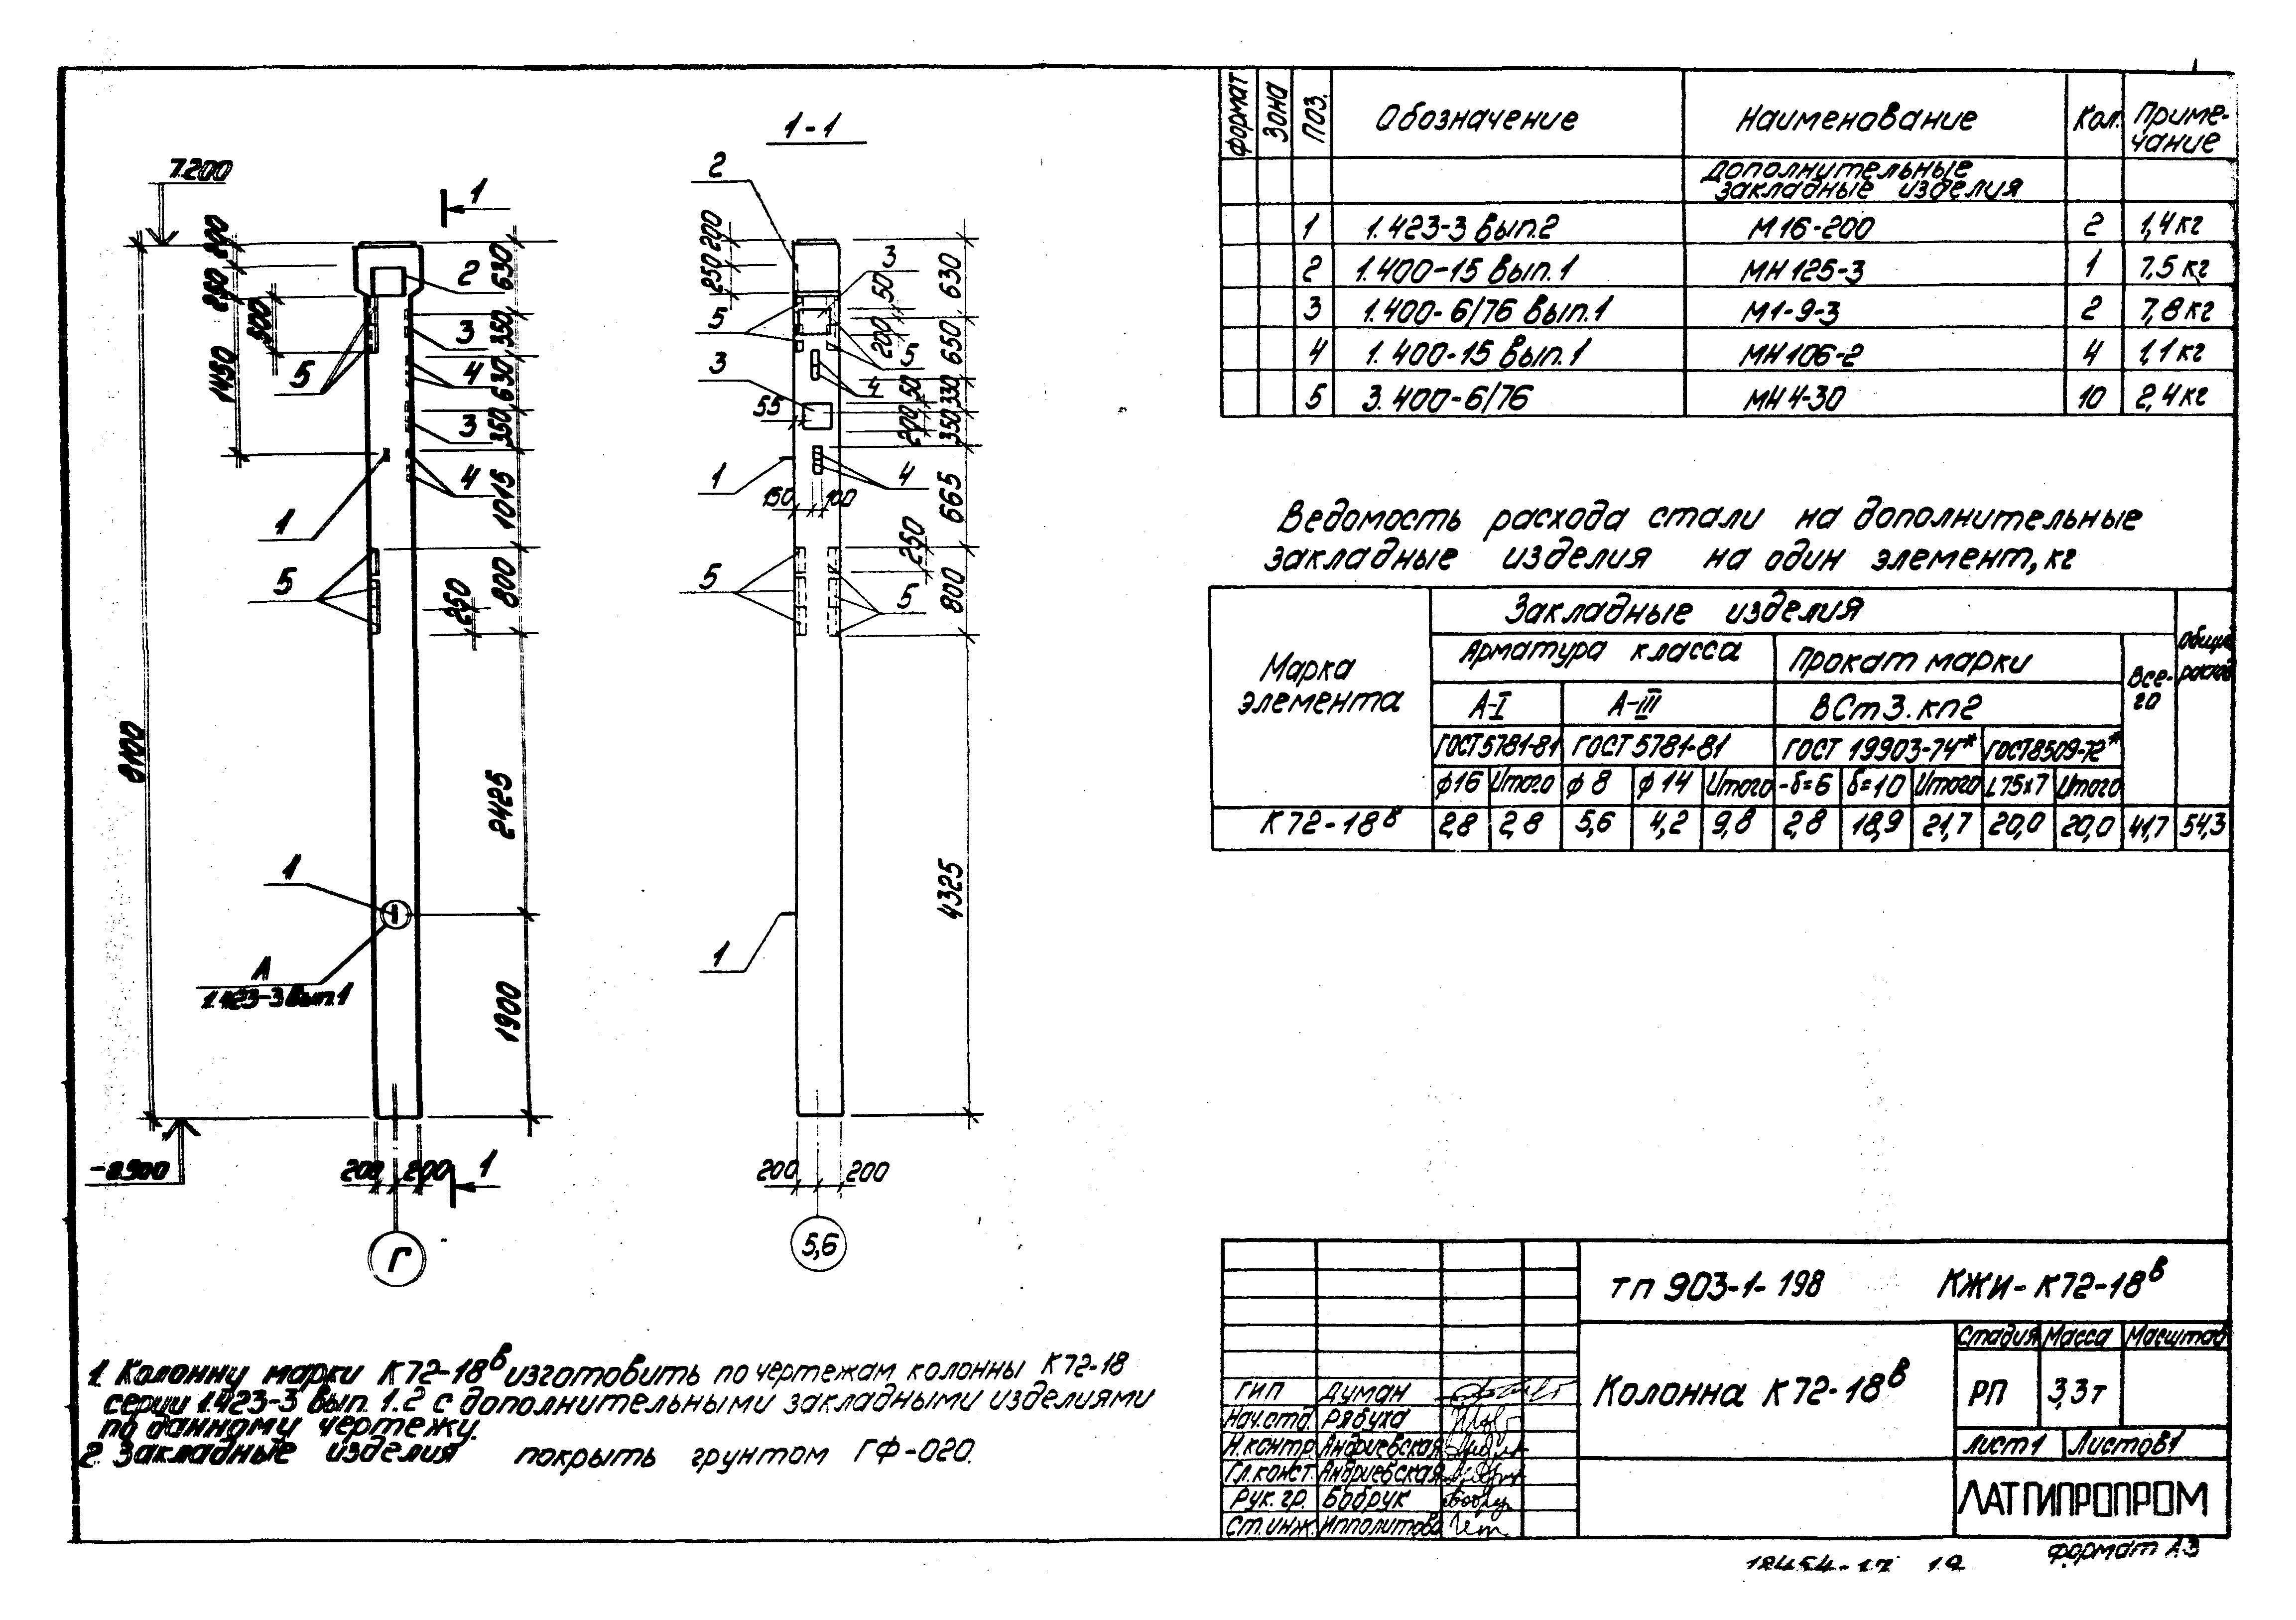 1-1
7.200
1
200
250
300
1450
8100
2
630
350
630
350
1015
800
250
2425
1900
3
4
3
4
5
1
5
1
А
1.423-3 Вып.1
-0.900
200 200
1
Г
2
200
250
3
50
200
5
5
4
3
50
200
55
1
4
150 100
630
650
330
350
665
250
800
4325
5
5
1
200 200
5,6
1. Колонну марки К72-18в изготовить по чертежам колонны К72-18
серии 1.423-3 Вып. 1.2 с дополнительными закладными изделиями
по данному чертежу.
2. Закладные изделия покрыть грунтом ГФ-020.
формат Зона Поз. Обозначение Наименование Кол. Приме-
чание
дополнительные
закладные изделия
1 1.423-3 Вып.2 М16-200 2 1,4 кг
2 1.400-15 Вып.1 МН125-3 1 7.5 кг
3 1.400-6/76 Вып.1 М1-9-3 2 7,8 кг
4 1.400-15 Вып.1 МН106-2 4 1,1 кг
5 3.400-6/76 МН4-30 10 2,4 кг
Ведомость расхода стали на дополнительные
закладные изделия на один элемент, кг
Марка
элемента
Закладные изделия
Арматура класса Прокат марки
Все-
го
А-I А-III ВСт3.кп2
ГОСТ5781-81 ГОСТ5781-81 ГОСТ 19903-74* ГОСТ8509-72*
ф16 Итого ф8 ф14 Итого -δ=6 δ=10 Итого L75х7 Итого
К72-18в 2,8 2,8 5,6 4,2 9,8 2,8 18,9 21,7 20,0 20,0 41,7 54,3
тп 903-1-198 КЖИ-К72-18в
Колонна К72-18в
Стадия Масса Масштаб
РП 3,3т
Лист1 Листов1
ГИП Думан
Нач.отд. Рябуха
Н.контр. Андриевская
Гл.конст. Андриевская
Рук.гр. Бобрук
Ст.инж. Ипполитова
ЛАТГИПРОПРОМ
формат А3